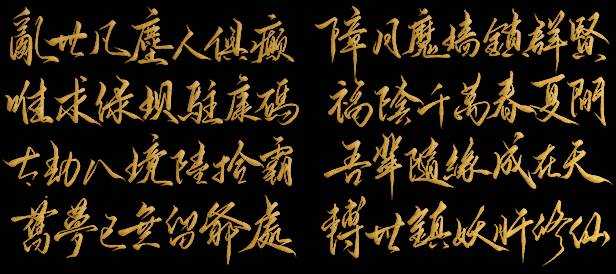 亂世凡塵人俱癲 障月魔墻鎖群賢
唯求绿坝駐康碼 福陰千萬春夏間
古劫八境陸拾霸 吾輩隨緣成在天
舊夢已無留爺處 轉世鎮妖肝修仙